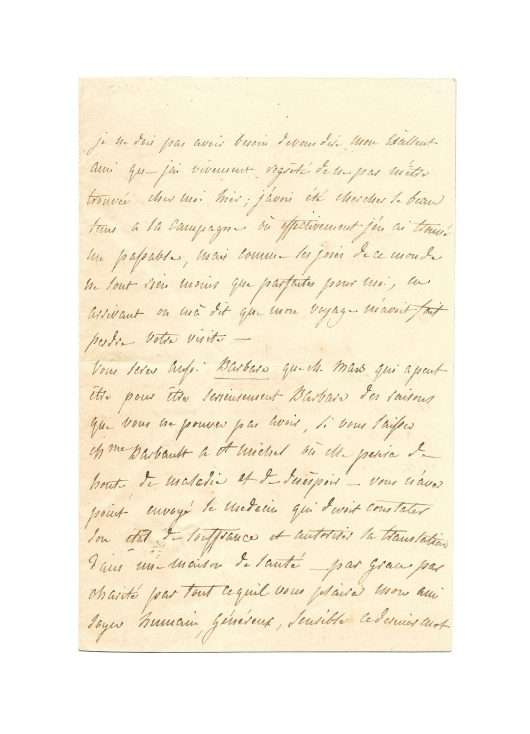 je ne dois pas avoir besoin de vous dire, mon Exellent
ami que j'ai vivement regrété de ne pas m'être
trouvée chez moi hier; j'avois été chercher le beau
tems a la Campagne où effectivement j'en ai trouvé
un passable, mais comme les joies de ce monde
ne sont rien moins que parfaites pour moi, en
arrivant on m'a dit que mon voyage m'avoit fait
perdre votre visite —
Vous serez aussi Barbare que M. Mars qui a peut
être pour être serieusement Barbare des raisons
que vous ne pouvez pas avoir, si vous laissez
Mme Barbault a St Michel où elle perira de
honte de maladie et de desespoir — vous n'avez
point envoyé le medecin qui devoit constater
son état de souffrance et autoriser la translation
dans une maison de santé — par grace par
charité par tout ce qu'il vous plaira mon ami
soyez humain, généreux, sensible ce dernier mot